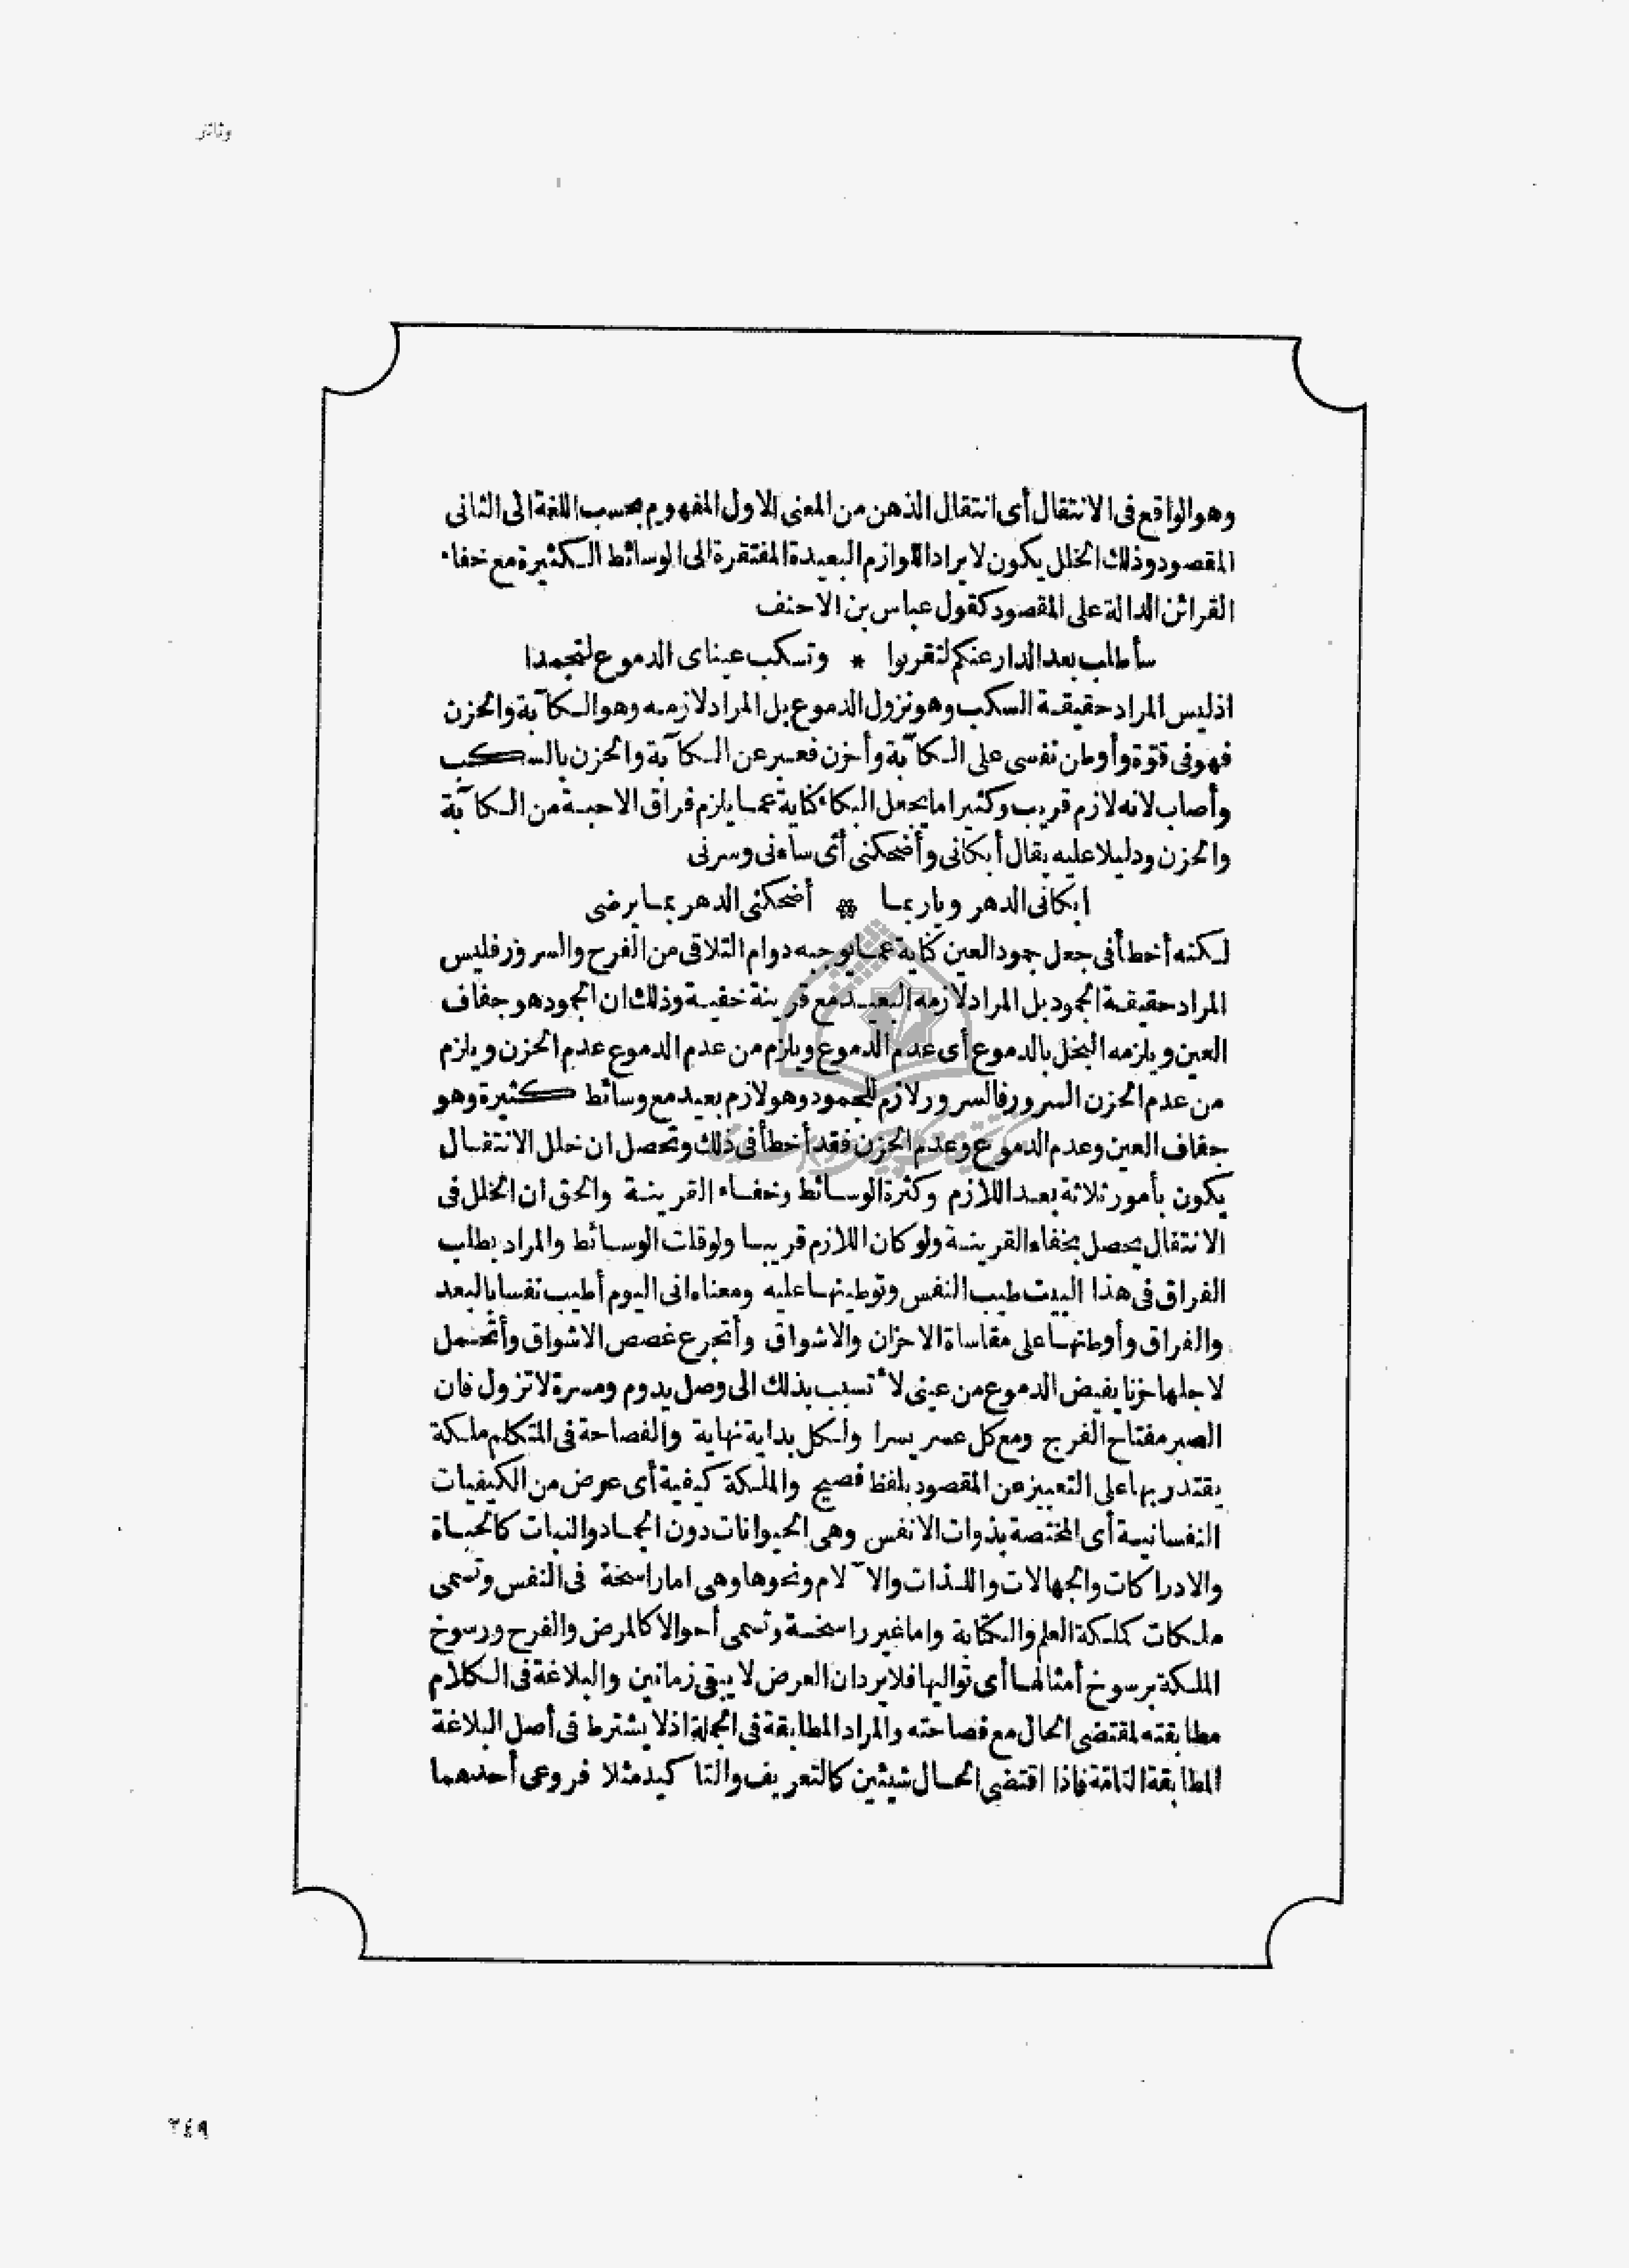 وثائق
وهو الواقع فى الانتقال أى انتقال الذهن من المعنى الاول المفهوم بحسب اللغة الى الثانى
المقصود وذلك الخلل يكون لايراد اللوازم البعيدة المفتقرة الى الوسائط الكثيرة مع خفاء
القرائن الدالة على المقصود كقول عباس بن الاحنف
سأطلب بعد الدار عنكم لتقربوا * وتسكب عيناى الدموع لتجمدا
اذ ليس المراد حقيقة السكب وهو نزول الدموع بل المراد لازمه وهو الكآبة والحزن
فهو فى قوّة وأوطن نفسى على الكآبة وأحزن فعبر عن الكآبة والحزن بالسكب
وأصاب لانه لازم قريب وكثيرا ما يجعل البكاء كناية عما يلزم فراق الاحبة من الكآبة
والحزن ودليلا عليه يقال أبكانى وأضحكنى أى ساءنى وسرنى
ابكانى الدهر ويا ربما * أضحكنى الدهر بما يرضى
لكنه أخطأ فى جعل جمود العين كناية عما يوجبه دوام التلاقى من الفرح والسرور فليس
المراد حقيقة الجمود بل المراد لازمه البعيد مع قرينة خفية وذلك ان الجمود هو جفاف
العين ويلزمه البخل بالدموع أى عدم الدموع ويلزم من عدم الدموع عدم الحزن ويلزم
من عدم الحزن السرور فالسرور لازم للجمود وهو لازم بعيد مع وسائط كثيرة وهو
جفاف العين وعدم الدموع وعدم الحزن فقد أخطأ فى ذلك وتحصل ان خلل الانتقال
يكون بأمور ثلاثة بعد اللازم وكثرة الوسائط وخفاء القرينة والحق ان الخلل فى
الانتقال يحصل بخفاء القرينة ولو كان اللازم قريبا ولو قلت الوسائط والمراد بطلب
الفراق فى هذا البيت طيب النفس وتوطينها عليه ومعناه انى اليوم أطيب نفسا بالبعد
والفراق وأوطنها على مقاساة الاحزان والاشواق وأتجرع غصص الاشواق وأتحمل
لاجلها حزنا يفيض الدموع من عينى لأتسبب بذلك الى وصل يدوم ومسرة لا تزول فان
الصبر مفتاح الفرج ومع كل عسر يسرا ولكل بداية نهاية والفصاحة فى المتكلم ملكة
يقتدر بها على التعبير عن المقصود بلفظ فصيح والملكة كيفية أى عرض من الكيفيات
النفسانية أى المختصة بذوات الانفس وهى الحيوانات دون الجماد والنبات كالحياة
والادراكات والجهالات واللذات والآلام ونحوها وهى اما راسخة فى النفس وتسمى
ملكات كملكة العلم والكتابة واما غير راسخة وتسمى أحوالا كالمرض والفرح ورسوخ
الملكة برسوخ أمثالها أى تواليها فلا يرد ان العرض لا يبقى زمانين والبلاغة فى الكلام
مطابقته لمقتضى الحال مع فصاحته والمراد المطابقة فى الجملة اذ لا يشترط فى أصل البلاغة
المطابقة التامّة فاذا اقتضى الحال شيئين كالتعريف والتاكيد مثلا فروعى أحدهما
٢٤٩